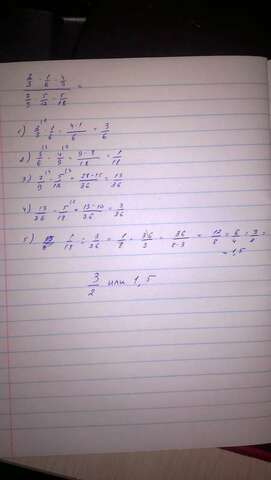 2/3 - 1/6 - 4/9
=
7/9 - 5/12 - 5/18
1) 2/3 - 1/6 = 4-1/6 = 3/6
2) 3/6 - 4/9 = 9-8/18 = 1/18
3) 7/9 - 5/12 = 28-15/36 = 13/36
4) 13/36 - 5/18 = 13-10/36 = 3/36
5) 1/18 : 3/36 = 1/8 · 36/3 = 36/8·3 = 12/8 = 6/4 = 3/2 =
= 1,5
3/2 или 1,5